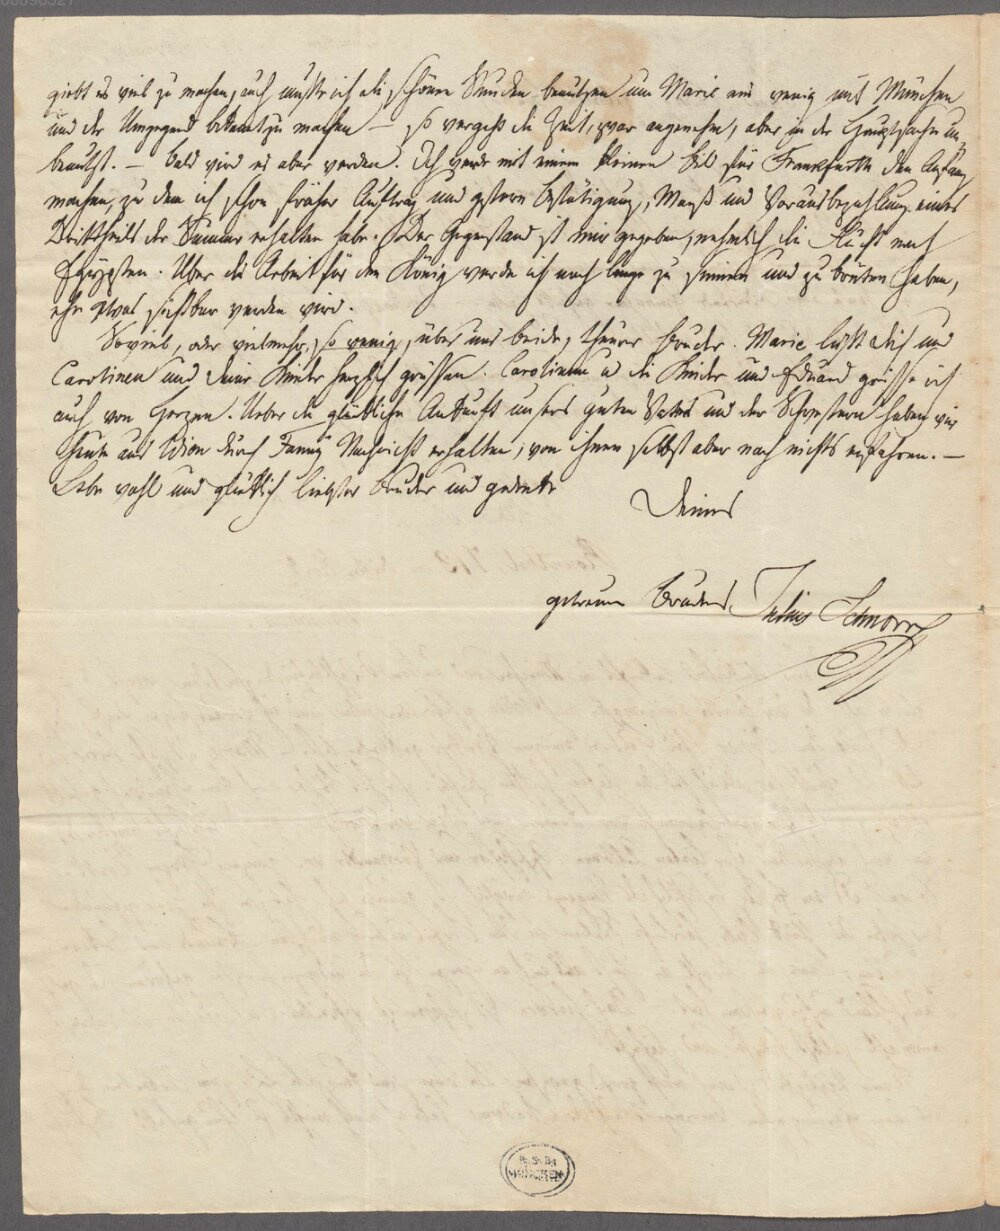 giebt es viel zu machen, auch mußte ich die schönen Stunden benutzen um Marie ein wenig mit München
und der Umgegend bekannt zu machen — so vergeht die Zeit, zwar angenehm, aber in der Hauptsache un
benutzt. — Bald wird es aber werden. Ich werde mit einem kleinen Bild für Frankfurth den Anfang
machen, zu dem ich schon früher Auftrag und gestern Bestätigung, Maaß und Vorausbezahlung eines
Drittheils der Summe erhalten habe. Der Gegenstand ist mir gegeben, nehmlich die Flucht nach
Egÿpten. Über die Arbeit für den König werde ich noch lange zu sinnen und zu brüten haben,
ehe etwas sichtbar werden wird.
Soviel, oder vielmehr, so wenig, über uns beide, theurer Bruder. Marie läßt Dich und
Carolinen und Deine Kinder herzlich grüssen. Carolinen u die Kinder und Eduard grüsse ich
auch von Herzen. Ueber die glückliche Ankunft unsers guten Vaters und der Schwestern haben wir
heute aus Wien durch Fanny Nachricht erhalten, von ihnen selbst aber noch nichts erfahren. —
Lebe wohl und glücklich liebster Bruder und gedenke
Deines
getreuen Bruders Julius Schnorr
MÜNCHEN